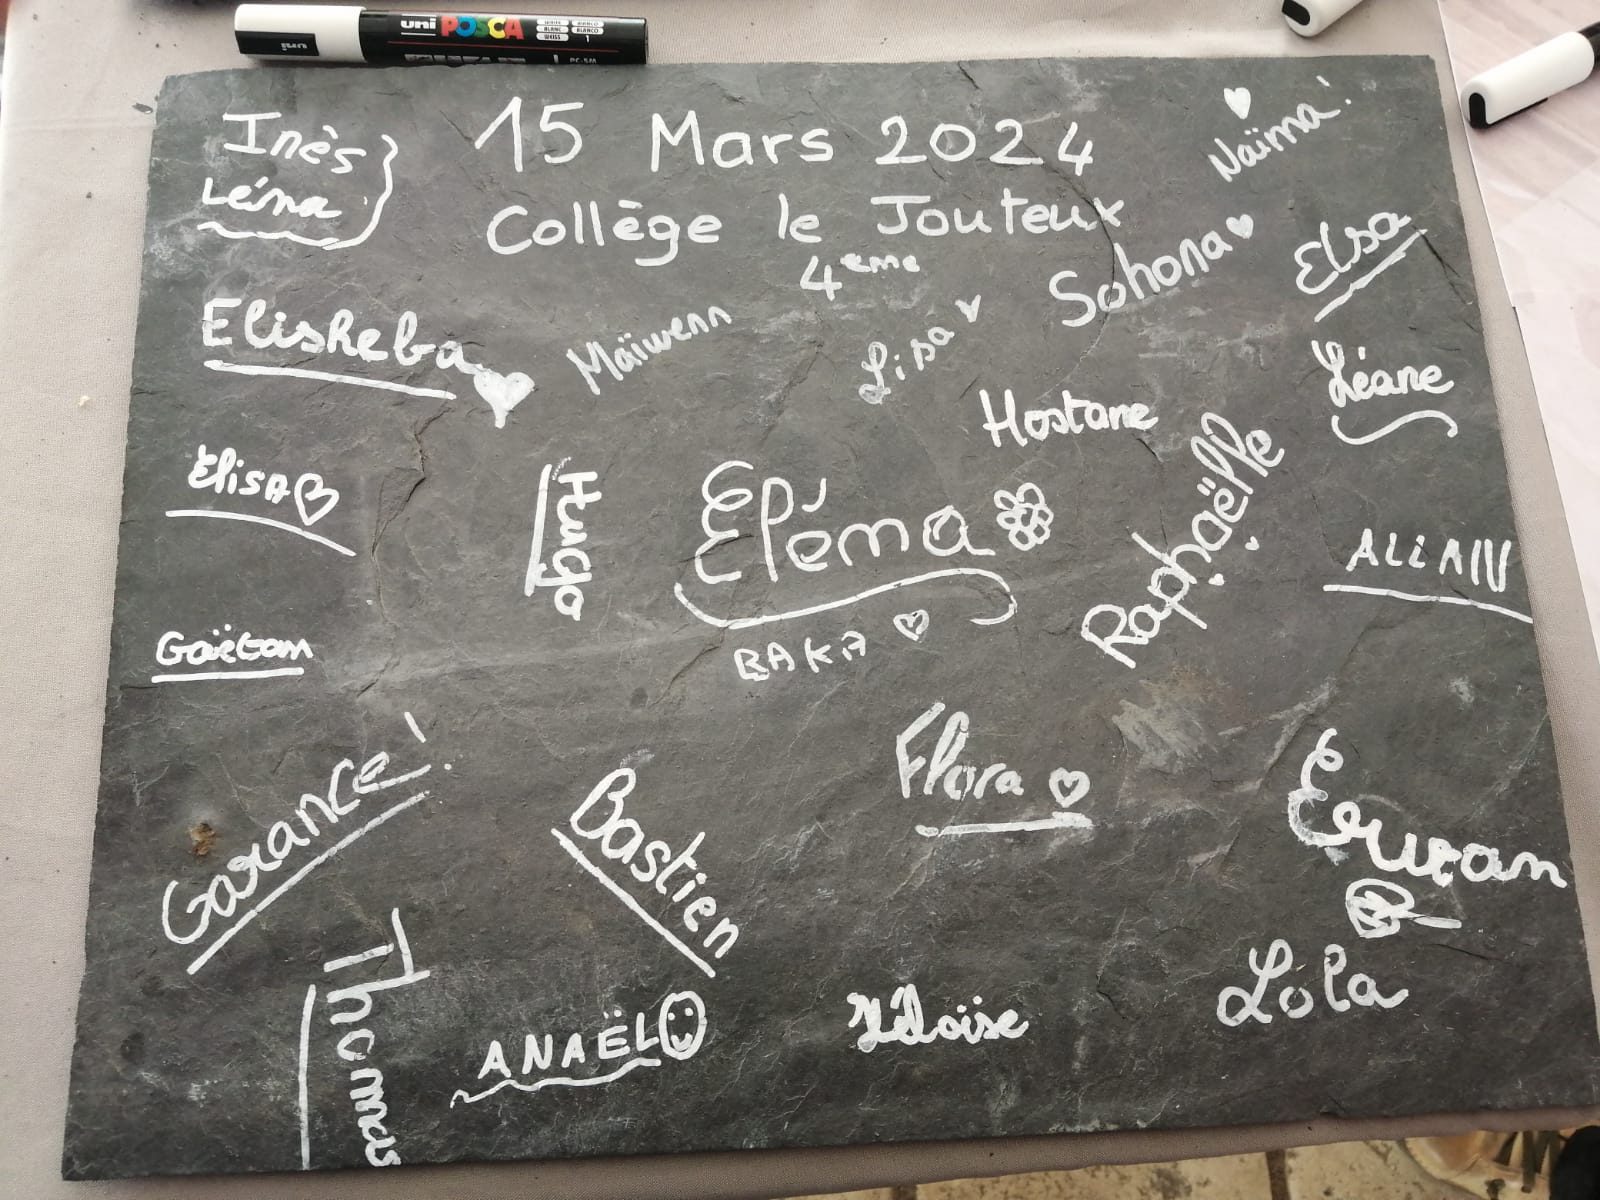 uni POSCA
PC-5M
Inès
Léna
15 Mars 2024
Collège le Jouteux
4eme
Naïma!
Sohona
Elsa
Elisheba
Maïwenn
Lisa
Léane
Hostane
Elisa
Hugo
Eléma
Raphaëlle
ALLAIN
BAKA
Gaëtan
Garance!
Bastien
Flora
Erwan
Thomas
ANAËL
Héloïse
Lola